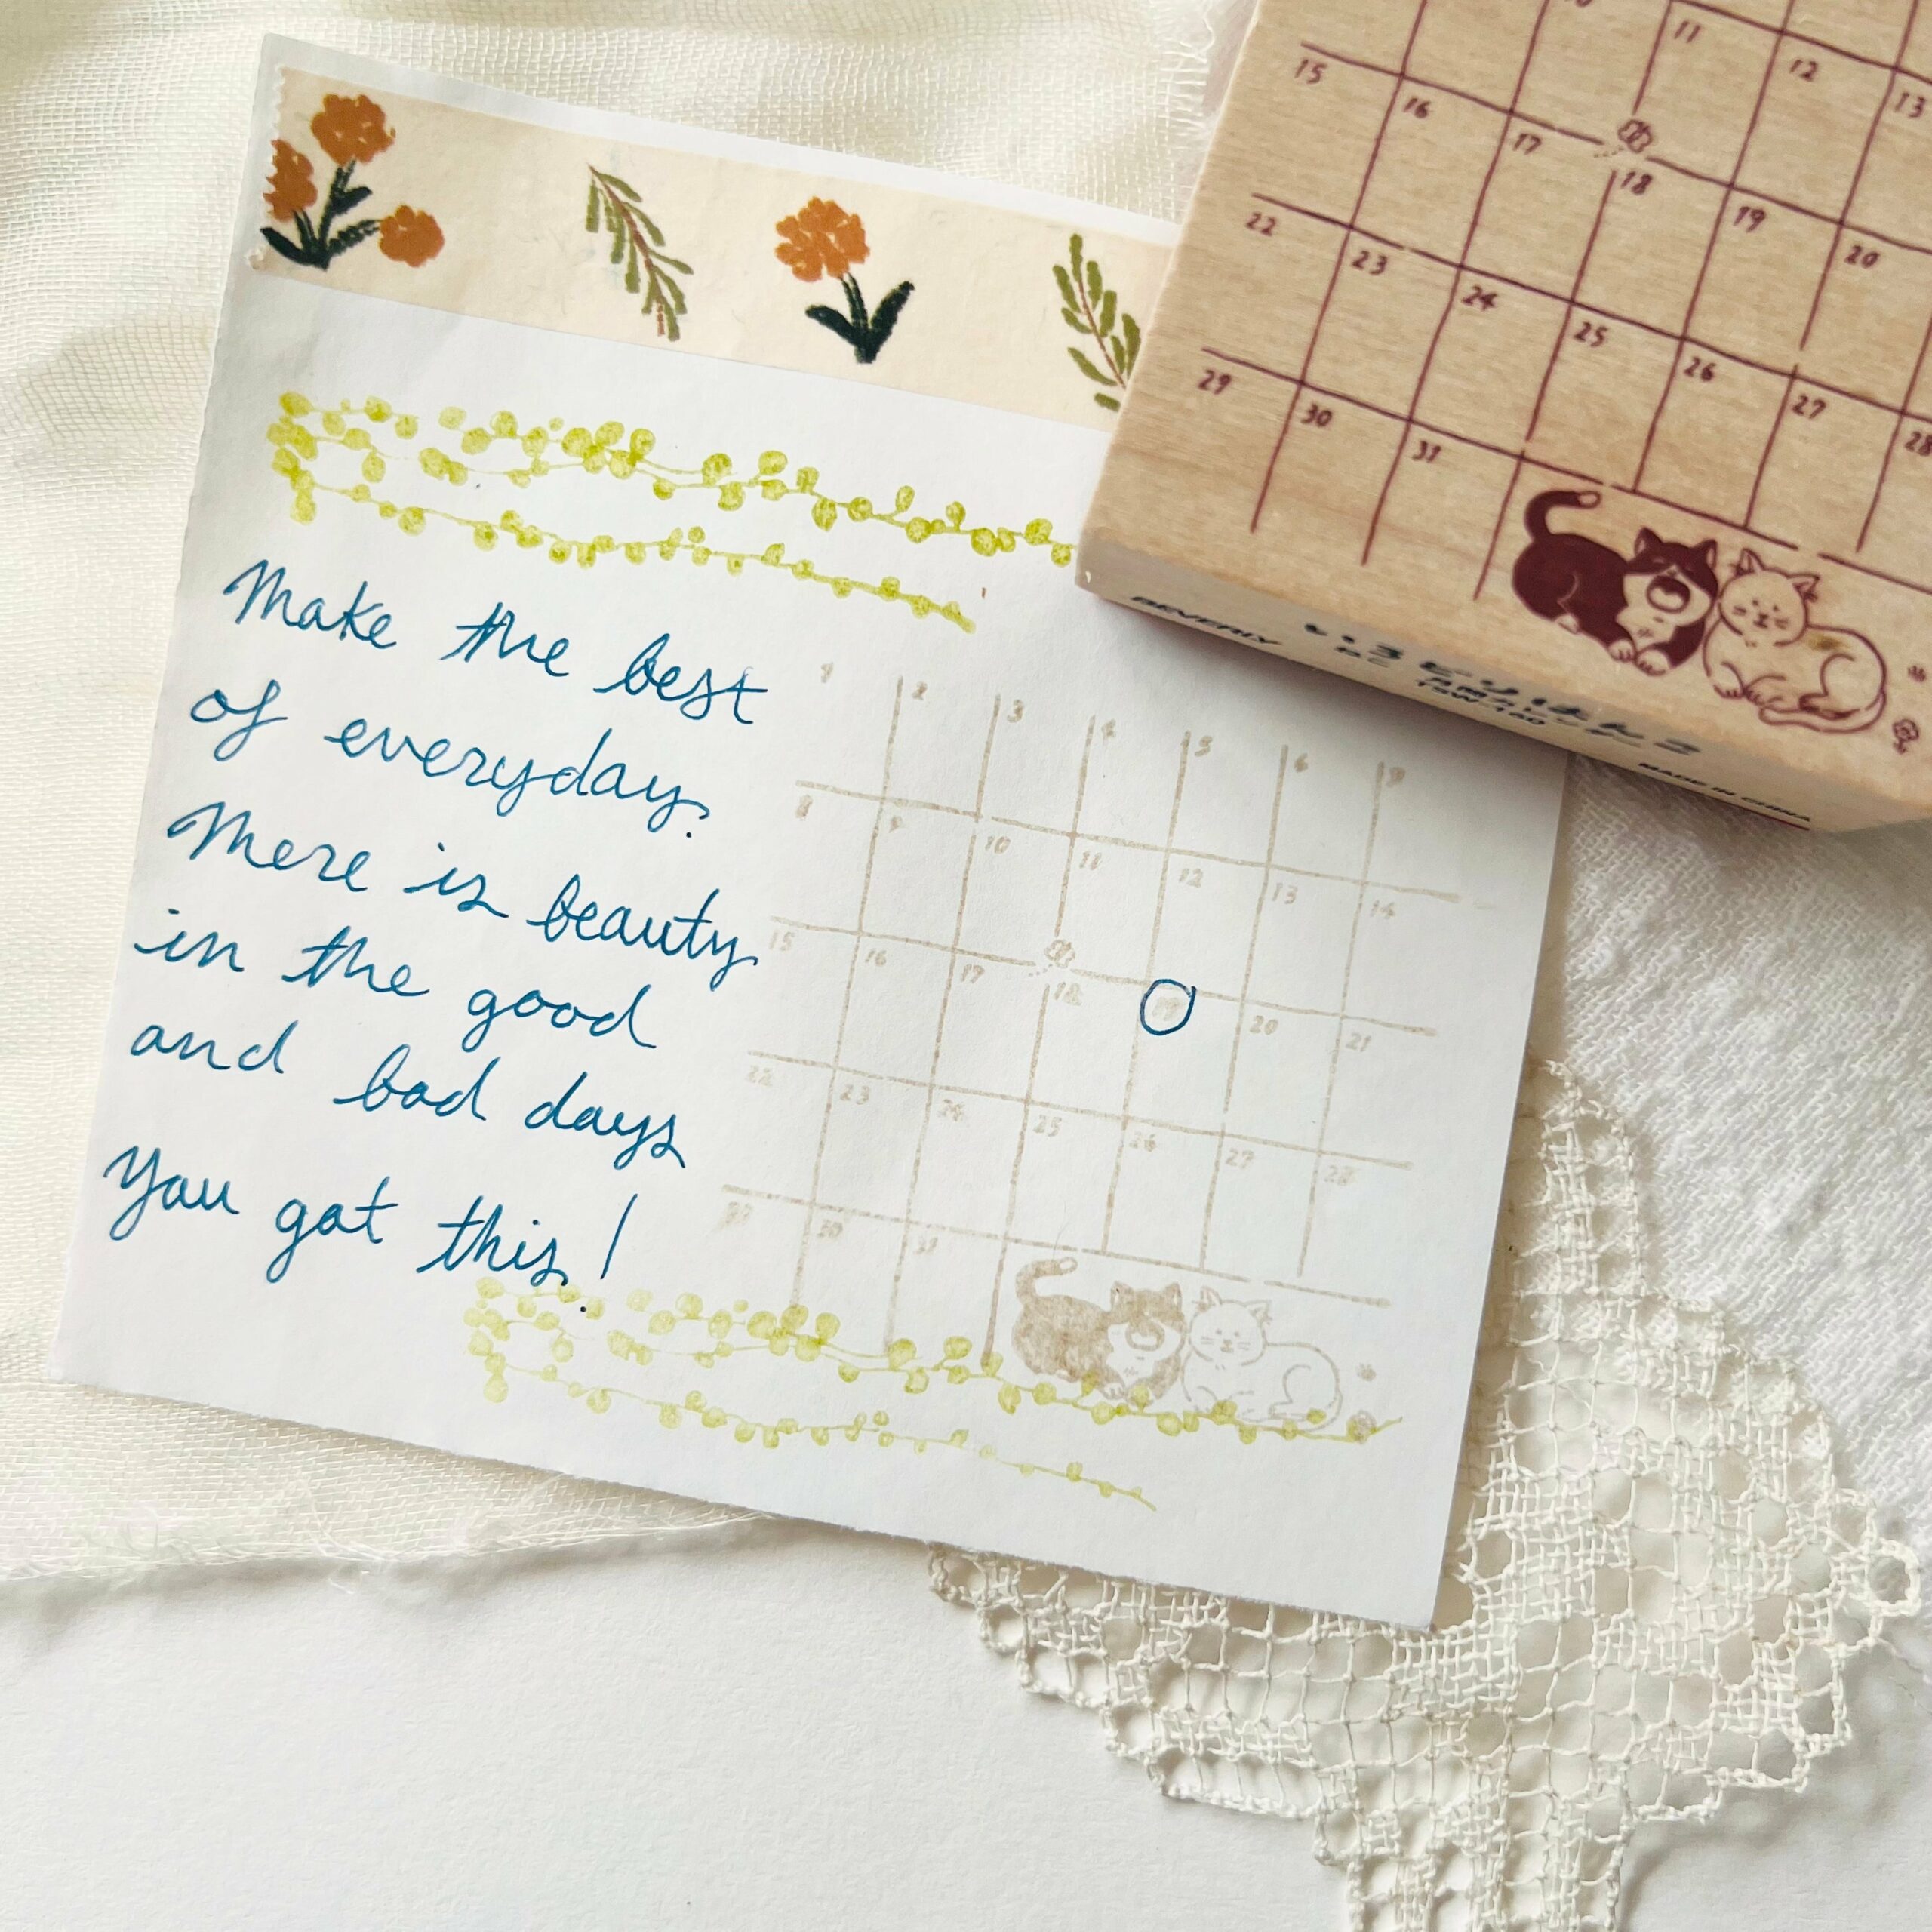 Make the best
of everyday.
There is beauty
in the good
and bad days
You got this!
1 2 3 4 5 6 7
8 9 10 11 12 13 14
15 16 17 18 19 20 21
22 23 24 25 26 27 28
29 30 31
10 11 12 13
15 16 17 18 19 20
22 23 24 25 26 27 28
29 30 31
BEVERLY
MADE IN CHINA